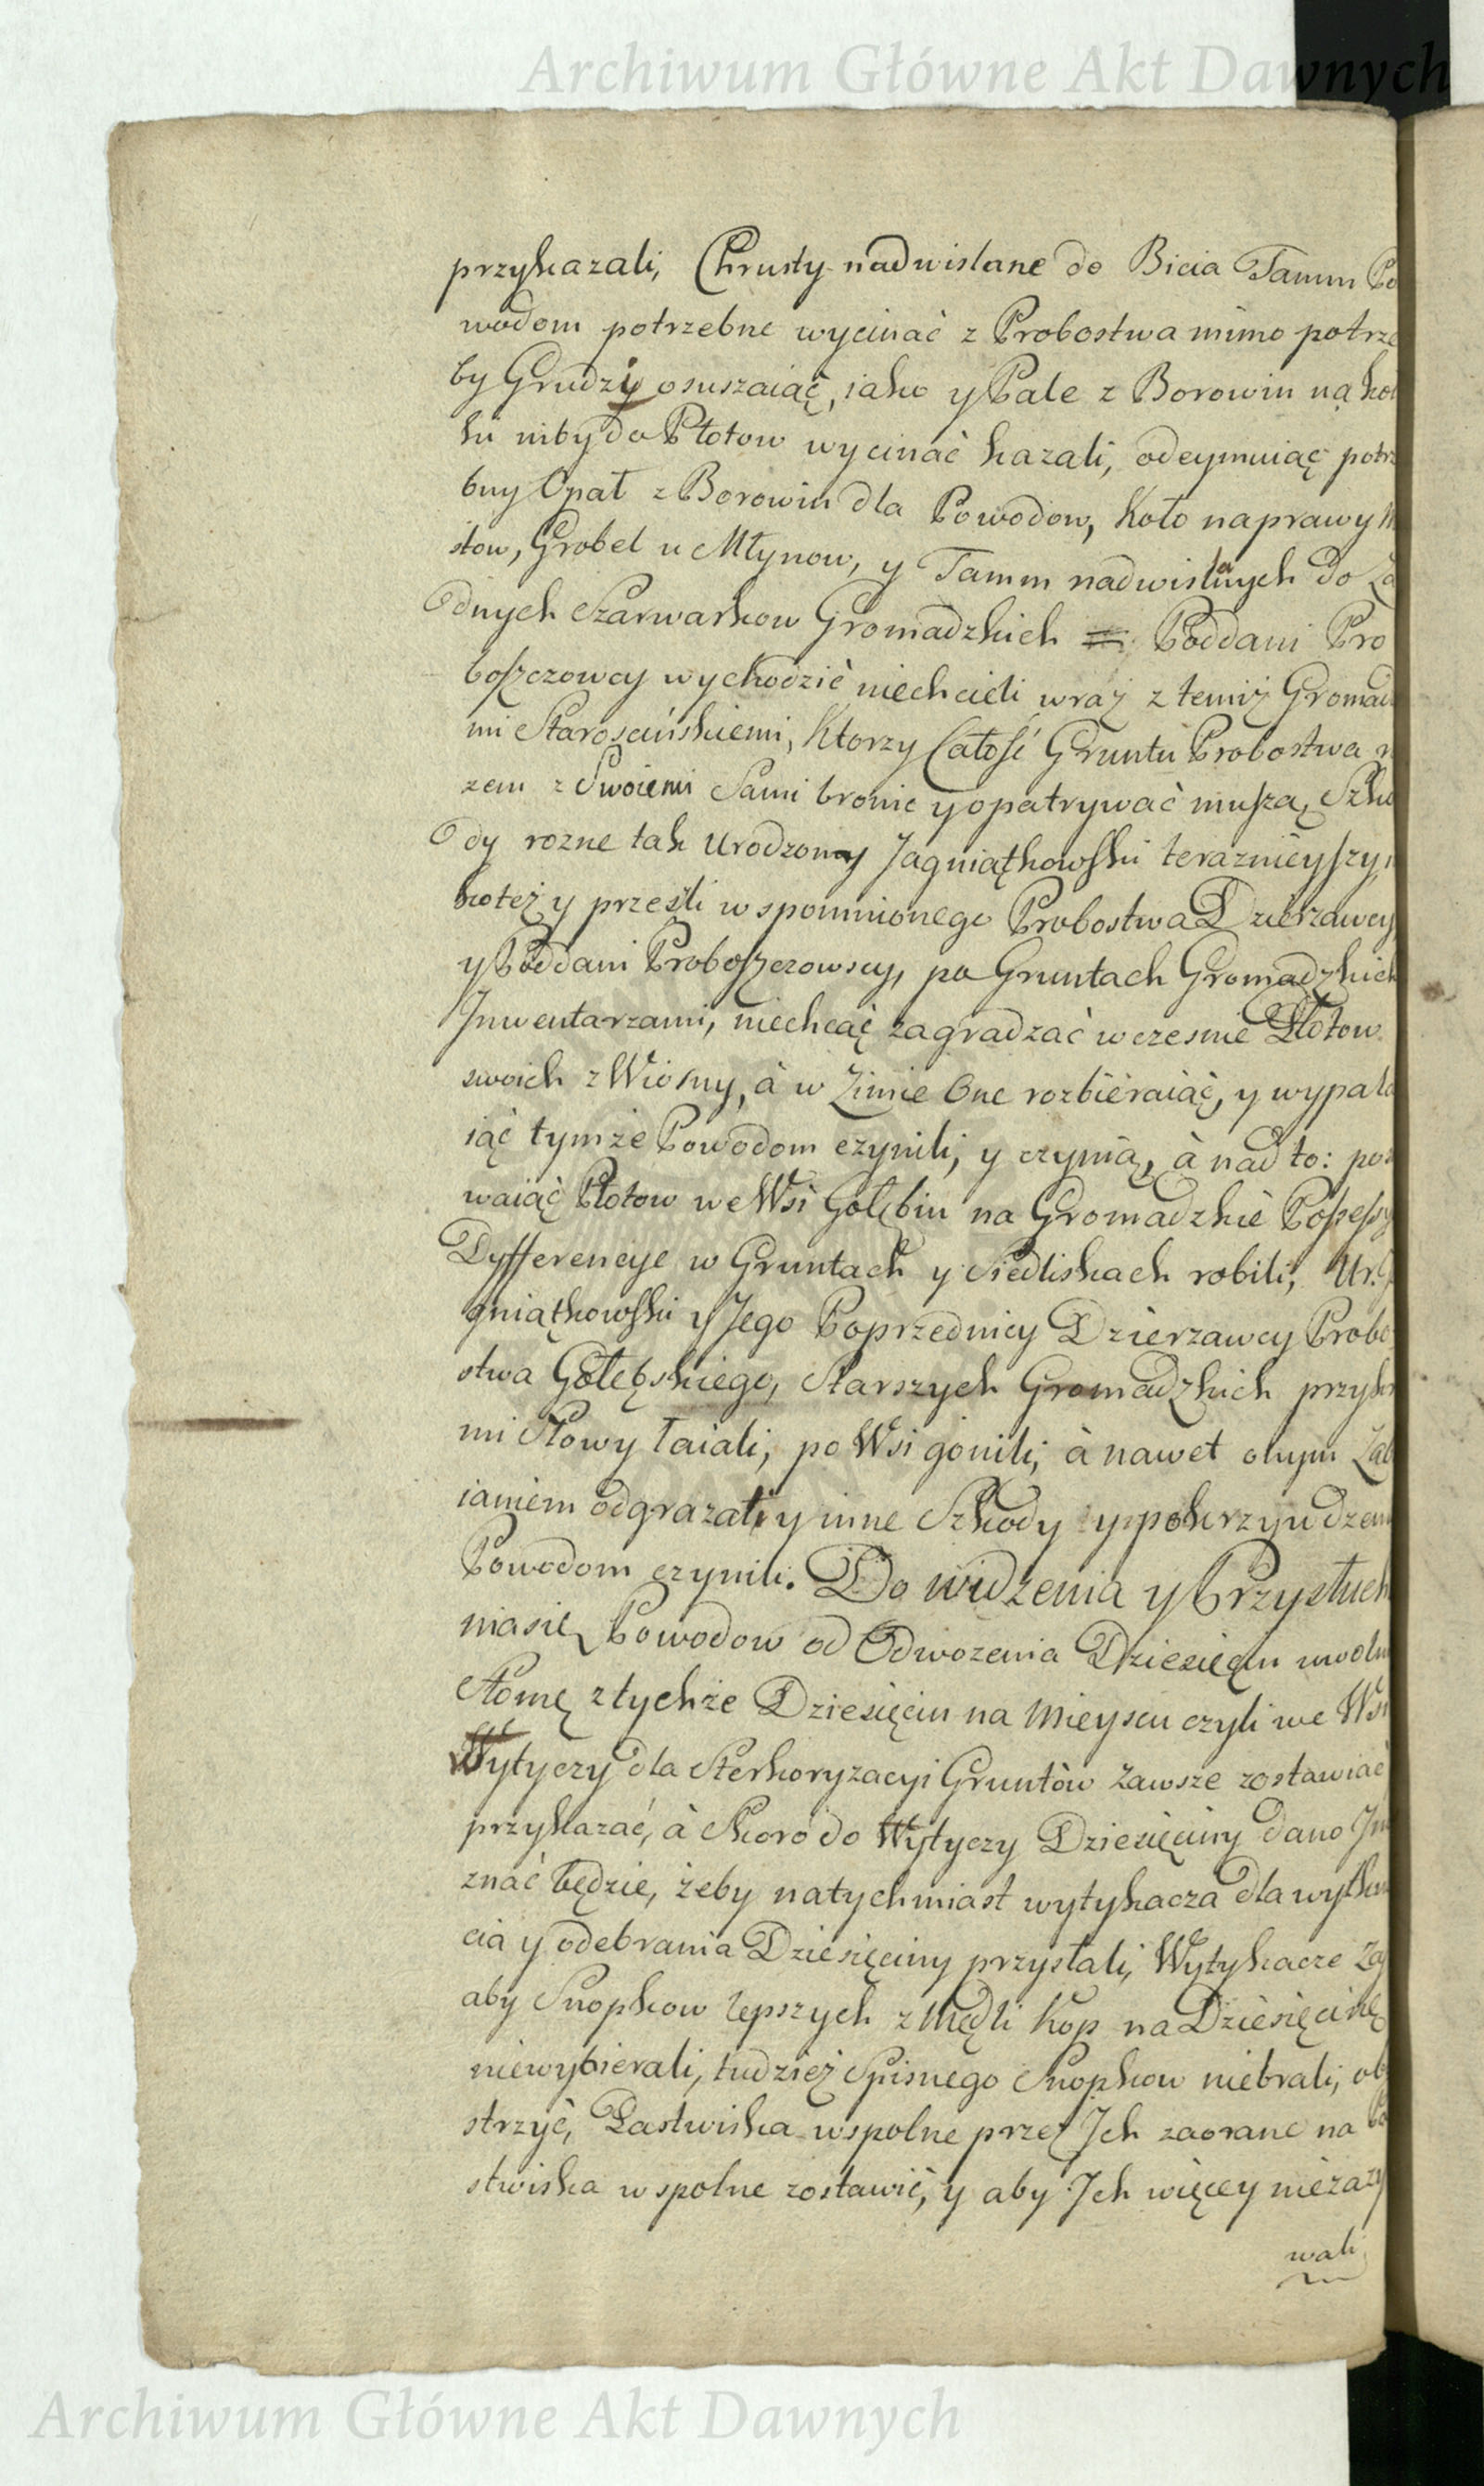 Archiwum Główne Akt Dawnych
przykazali, Chrusty nadwislane do Bicia Tamm Po
wodom potrzebne wycinać z Probostwa mimo potrze
by Grudzy osuszaiąc, iako y Pale z Borowin na koł
ku niby do Płotow wycinać kazali, odeymuiąc potrz
bny Opał z Borowin dla Powodow, Koło naprawy M
stow, Grobel u Młynow, y Tamm nadwislanych do Ża
dnych Szarwarkow Gromadzkich = Poddani Pro
boszczowcy wychodzić niechcieli wraz z temiż Gromad
mi Starościńskiemi, Ktorzy Całość Gruntu Probostwa r
zem z Swoiemi Sami bronic y opatrywać muszą, Szko
dy rozne tak Urodzony Jagniątkowski terazniéyszy,
ko też y przeszli wspomnionego Probostwa Dzierzawcy
y Poddani Proboszczowscy, po Gruntach Gromadzkich
Inwentarzami, niechcąc zagradzać wczesnie Płotow
swoich z Wiosny, à w Zimie One rozbiéraiąc, y wypala
iąc tymże Powodom czynili, y czynią, à nad to: pos
waiąc Płotow we Wsi Gołębiu na Gromadzkié Possessy
Dyfferencye w Gruntach y Siedliskach robili, Ur. J
gniątkowski y Jego Poprzednicy Dzierzawcy Probo
stwa Gołębskiego, Starszych Gromadzkich przykr
mi Słowy łaiali, po Wsi gonili, à nawet onym Zab
ianiem odgrazali y inne Szkody y pokrzywdzen
Powodom czynili. Do widzenia y Przysłuch
nia się Powodow od Odwozenia Dziesięcin uwoln
Słomę z tychże Dziesięcin na Mieyscu czyli we Wsi
Wytyczy dla Sterkoryzacyi Gruntów zawsze zostawiać
przykazać, à Skoro do Wytyczy Dziesięciny dano Im
znać będzie, żeby natychmiast wytykacza dla wytkni
cia y odebrania Dziesięciny przysłali, Wytykacze Zaś
aby Snopkow lepszych z Mędli Kop na Dziesięcinę
niewybierali, tudzież Spisnego Snopkow niebrali, ob
strzyć, Pastwiska wspolne przez Ich zaorane na Pa
stwiska wspolne zostawić, y aby Ich więcey niezazy
wali
Archiwum Główne Akt Dawnych